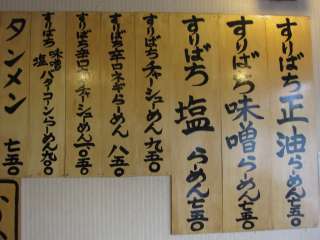 すりばち正油らーめん七五〇
すりばち味噌らーめん七五〇
すりばち塩らーめん七五〇
すりばちチャーシューめん九五〇
すりばち辛口ネギらーめん八五〇
すりばち辛口チャーシューめん一〇五〇
味噌塩バターコーンらーめん九〇〇
タンメン七五〇